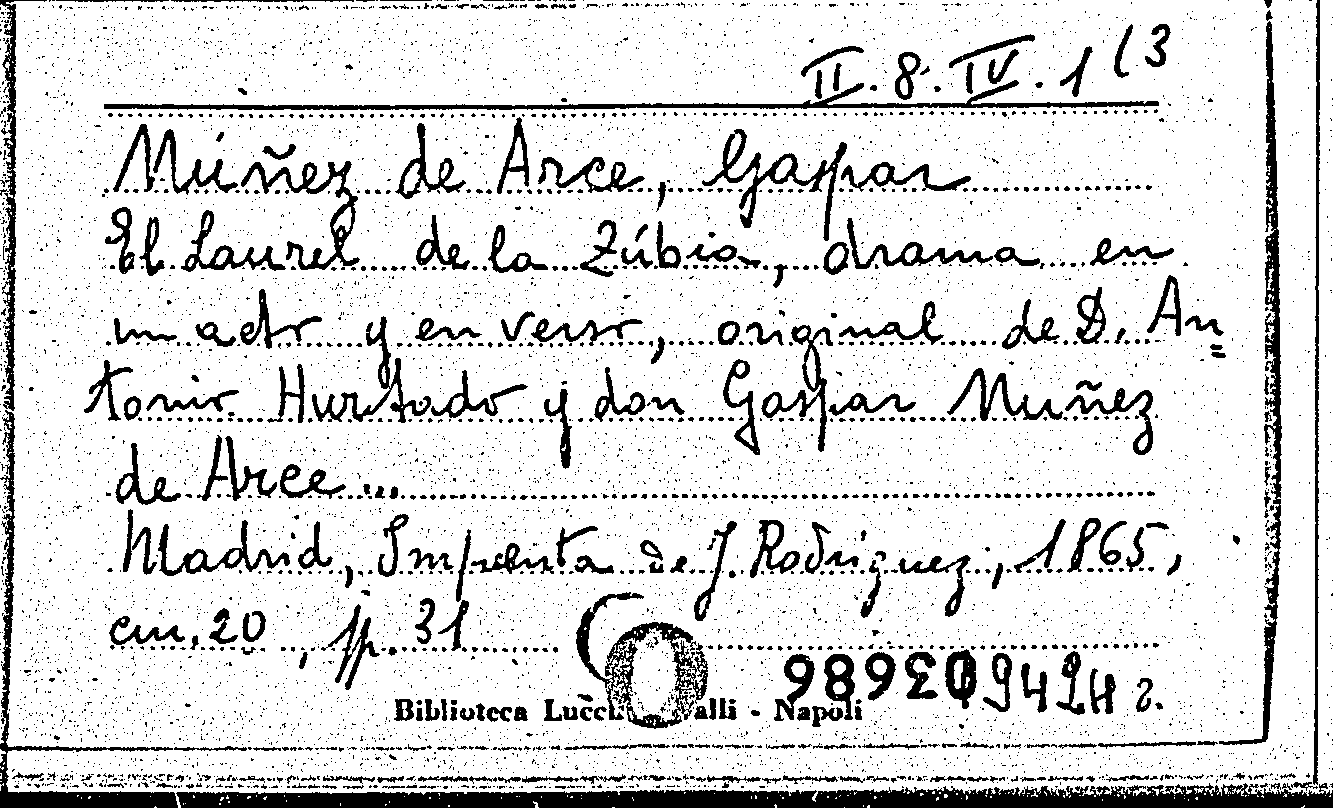 II. 8. IV. 1 (3
Múñez de Arce, Gaspar
El Laurel de la Zúbia, drama en
un acto y en verso, original de D. An=
tonio Hurtado y don Gaspar Muñez
de Arce...
Madrid, Imprenta de J. Rodriguez, 1865,
cm. 20, pp. 31
Biblioteca - Napoli